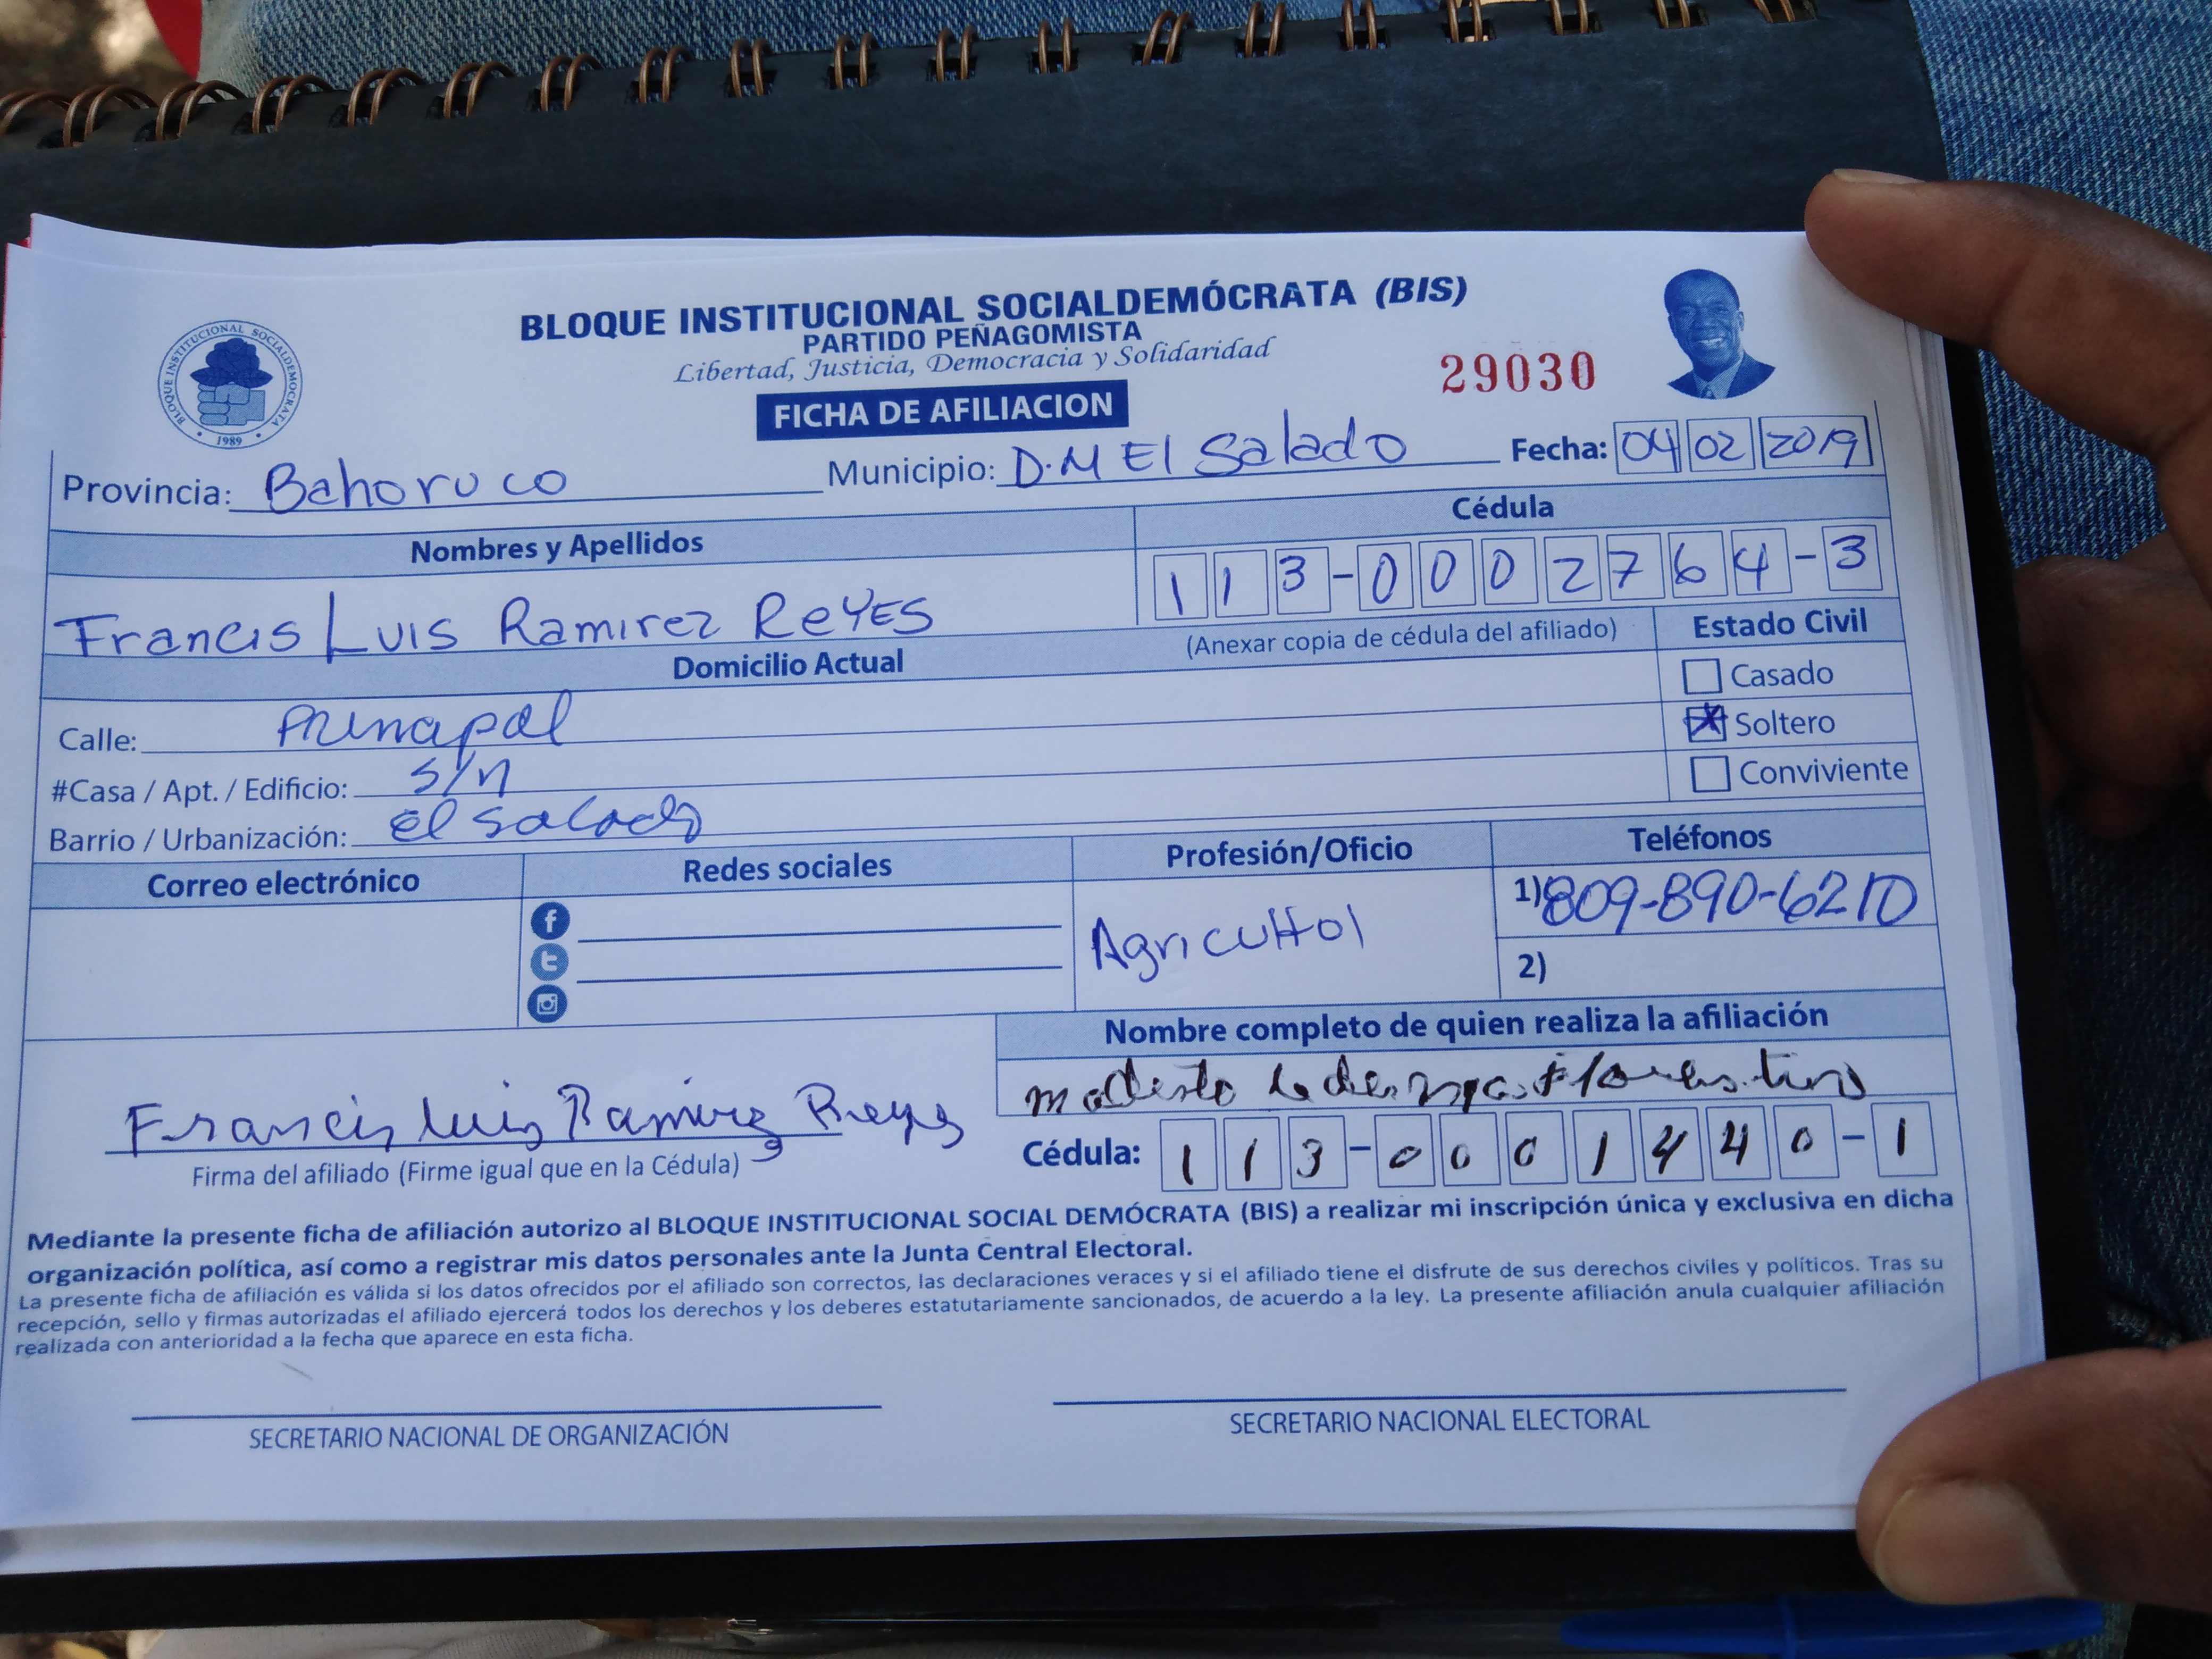 BLOQUE INSTITUCIONAL SOCIALDEMÓCRATA (BIS)
PARTIDO PEÑAGOMISTA
Libertad, Justicia, Democracia y Solidaridad
BLOQUE INSTITUCIONAL SOCIALDEMOCRATA
1989
29030
FICHA DE AFILIACION
Provincia: Bahoruco Municipio: D.M El Salado Fecha: 04 02 2019
Nombres y Apellidos Cédula
Francis Luis Ramirez ReYES 113-0002764-3
(Anexar copia de cédula del afiliado)
Domicilio Actual Estado Civil
Casado
Calle: Prinapal Soltero
#Casa / Apt. / Edificio: s/n Conviviente
Barrio / Urbanización: el salado
Correo electrónico Redes sociales Profesión/Oficio Teléfonos
Agricultol 1) 809-890-6210
2)
Nombre completo de quien realiza la afiliación
modesto
Francis Luis Ramirez Reyes
Firma del afiliado (Firme igual que en la Cédula) Cédula: 113-0001440-1
Mediante la presente ficha de afiliación autorizo al BLOQUE INSTITUCIONAL SOCIAL DEMÓCRATA (BIS) a realizar mi inscripción única y exclusiva en dicha
organización política, así como a registrar mis datos personales ante la Junta Central Electoral.
La presente ficha de afiliación es válida si los datos ofrecidos por el afiliado son correctos, las declaraciones veraces y si el afiliado tiene el disfrute de sus derechos civiles y políticos. Tras su
recepción, sello y firmas autorizadas el afiliado ejercerá todos los derechos y los deberes estatutariamente sancionados, de acuerdo a la ley. La presente afiliación anula cualquier afiliación
realizada con anterioridad a la fecha que aparece en esta ficha.
SECRETARIO NACIONAL DE ORGANIZACIÓN SECRETARIO NACIONAL ELECTORAL